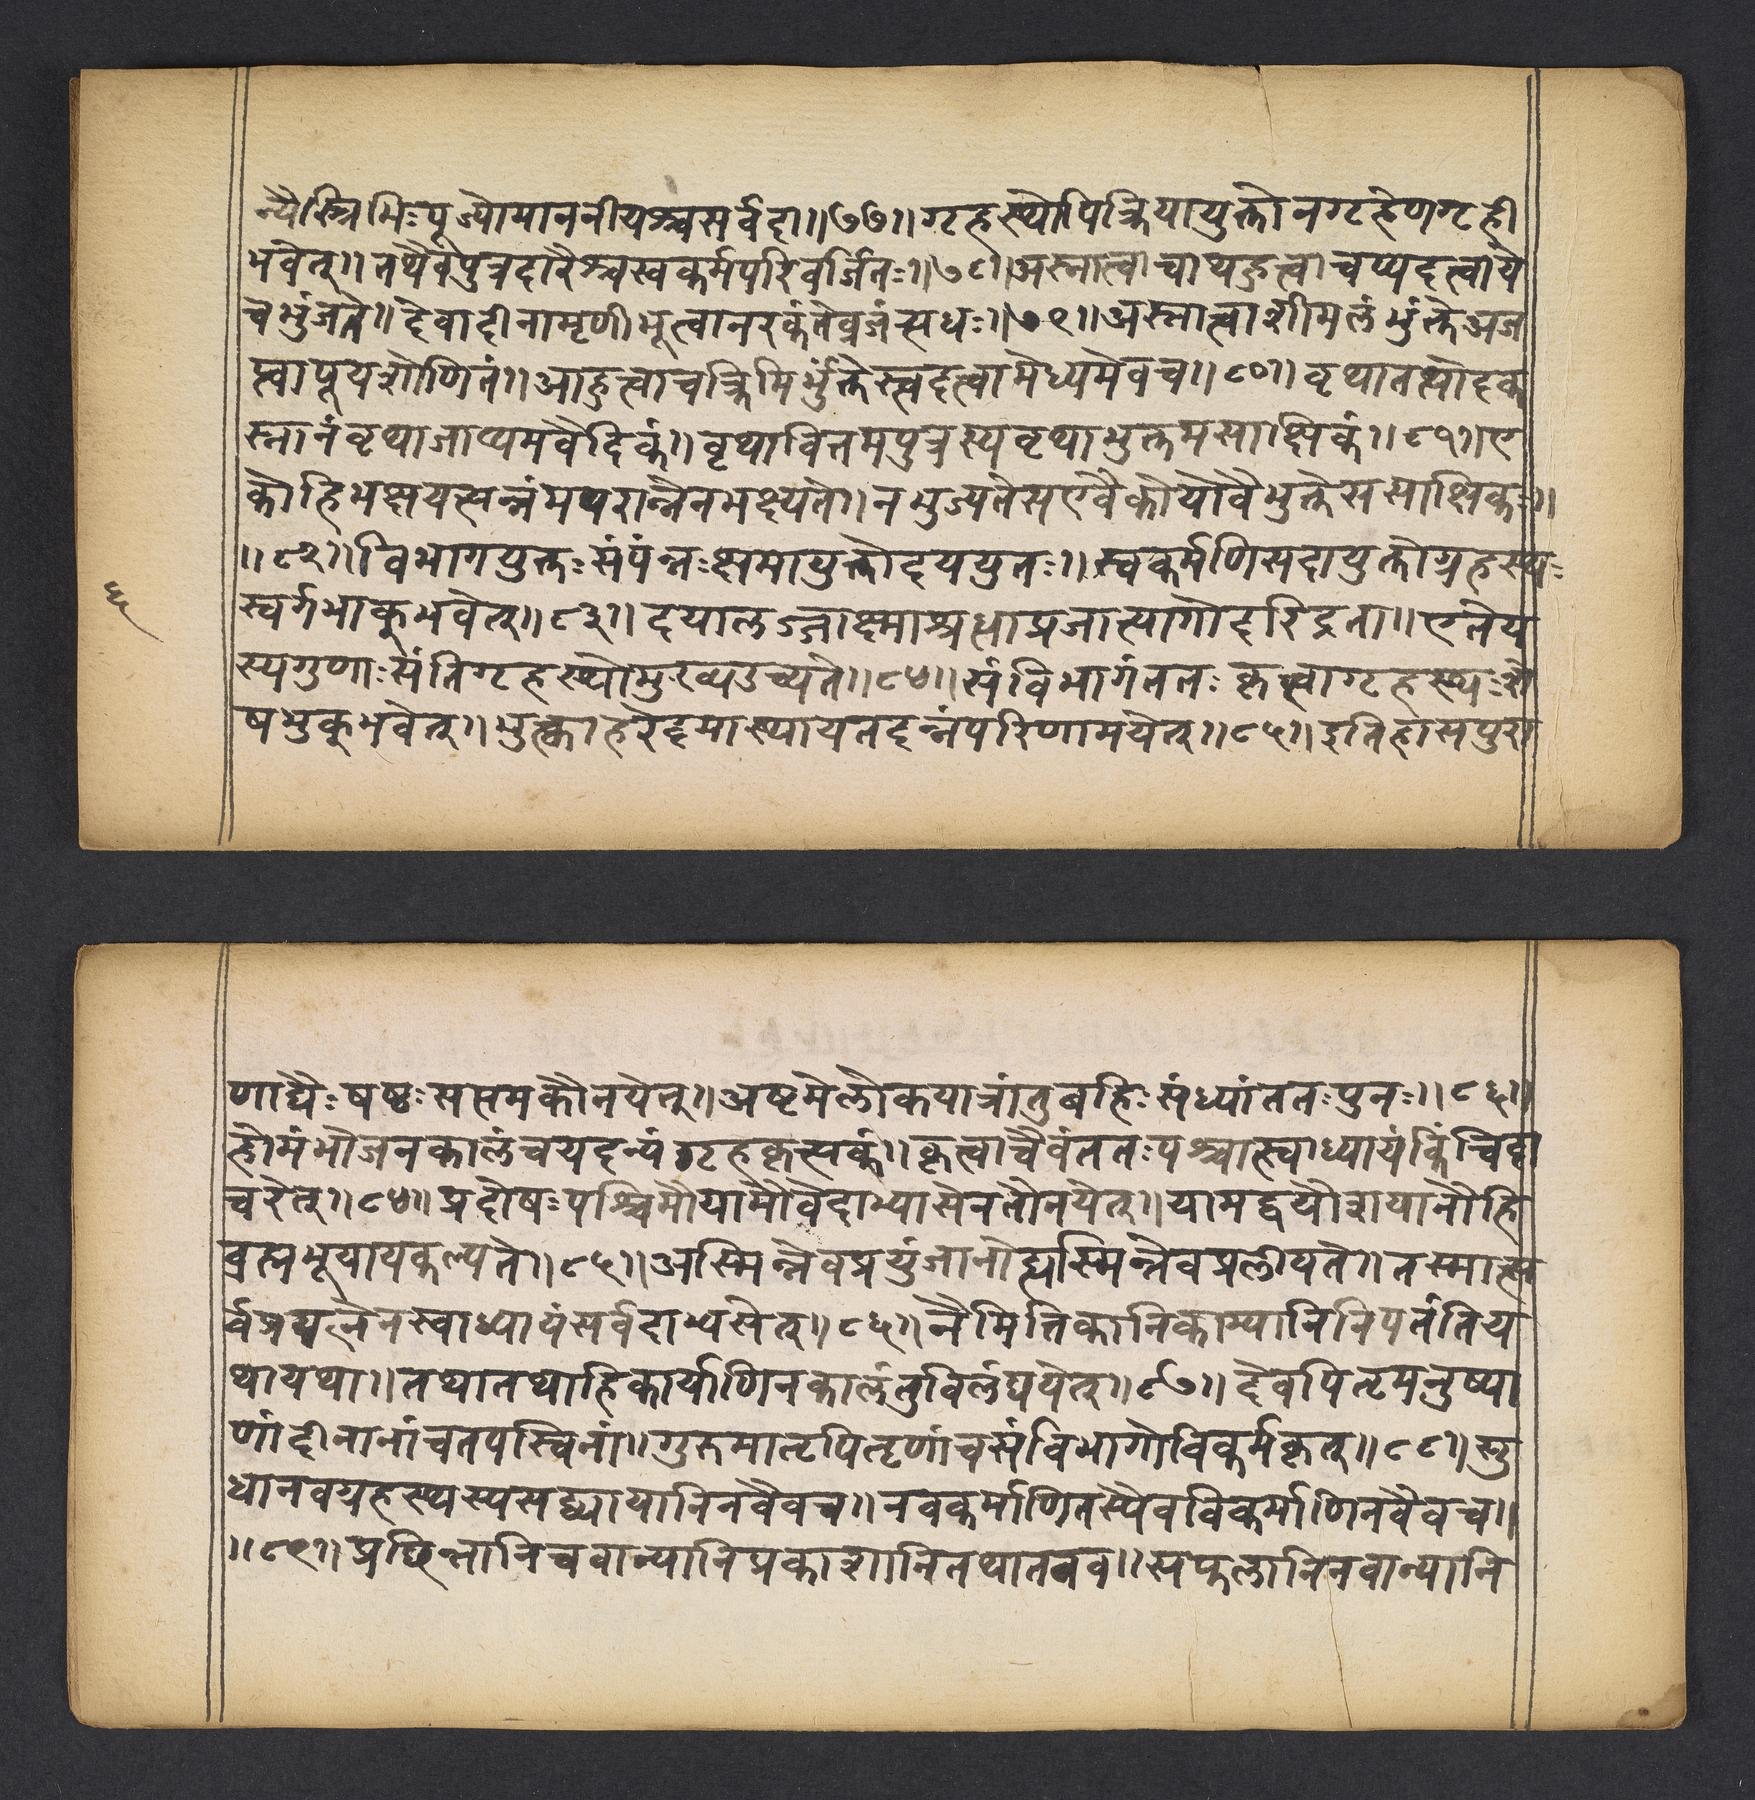 न्यैस्त्रिभिःपूज्योमाननीयश्चसर्वदा॥७७॥गृहस्थोपिक्रियायुक्तोनगृहेणगृही
भवेत्॥तथैवपुत्रदारैश्चस्वकर्मपरिवर्जितः॥७८॥अस्नात्वाचाप्यहुत्वाचप्यदत्वाये
चभुंजते॥देवादीनामृणीभूत्वानरकंतेव्रजंत्यधः॥७९॥अस्नात्वाशीमलंभुंक्तेअज
प्त्वापूयशोणितं॥आहुत्वाचक्रिमिर्भुंक्तेस्त्वदत्वामेध्यमेवच॥८०॥वृथातप्तोदक
स्नानंवृथाजाप्यमवैदिकं॥वृथावित्तमपुत्रस्यवृथाभुक्तमसाक्षिकं॥८१॥ए
कोहिभक्षयत्यन्नंमपरान्नेनभक्ष्यते॥नभुज्यतेसएवैकोयोवैभुक्तेससाक्षिकः॥
॥८२॥विभागयुक्तःसंपंन्नःक्षमायुक्तोदययुतः॥स्वकर्मणिसदायुक्तोग्रहस्थः
स्वर्गभाक्भवेत्॥८३॥दयालज्जाक्ष्माश्रधाप्रजात्यागोदरिद्रता॥एतेय
स्यगुणाःसंतिगृहस्थोमुख्यउच्यते॥८४॥संविभागंततःकृत्वागृहस्थःशे
षभुक्भवेत्॥भुत्क्वाहरेद्मास्थायतदन्नंपरिणामयेत्॥८५॥इतिहासपुरा
६
णाद्यैःषष्ठःसप्तमकौनयेत्॥अष्टमेलोकयात्रांतुबहिःसंध्यांततःपुनः॥८६॥
होमंभोजनकालंचयदन्यंगृहकृत्यकं॥कृत्वाचैवंततःपश्चात्स्वाध्यायंकिंचिदा
चरेत्॥८४॥प्रदोषःपश्चिमौयामौवेदाभ्यासेनतौनयेत्॥यामद्वयोशयानोहि
ब्रह्मभूयायकल्पते॥८५॥अस्मिन्नेवप्रयुंजानोह्यस्मिन्नेवप्रलीयते॥तस्मात्स
र्वप्रयत्नेनस्वाध्यायंसर्वदाभ्यसेत्॥८६॥नैमित्तिकानिकाम्यानिनिपतंतिय
थायथा॥तथातथाहिकार्याणिनकालंतुविलंघयेत्॥८७॥देवपितृमनुष्या
णांदीनानांचतपस्विनां॥गुरुमातृपितृणांचसंविभागोविकर्मकृत्॥८८॥सु
धानवग्रहस्थस्यसद्ध्यायानिनवैवच॥नवकर्माणितस्यैवविकर्माणिनवैवच॥
॥८९॥प्रछिन्नानिचवान्यानिप्रकाशानितथातवव॥सफलानिनवान्यानि